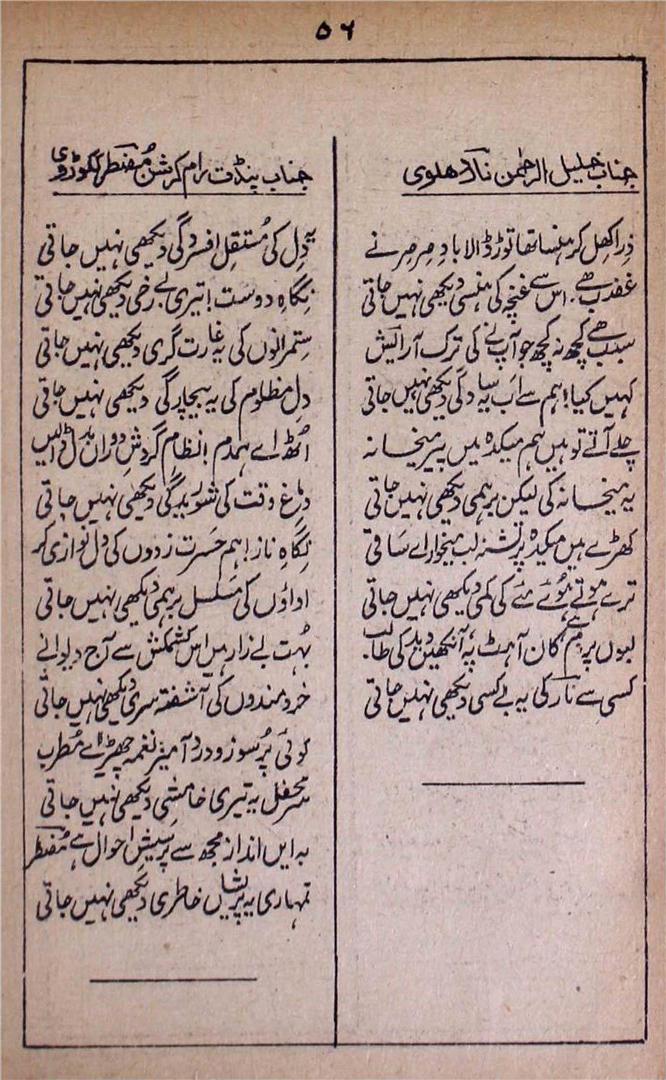 ۵۶
جناب خلیل الرحمٰن نازؔ دھلوی
ذرا کھل کر ہنسا تھا توڑ ڈالا بادِ صرصر نے
غضب ہے۔ اس سے غنچہ کی ہنسی دیکھی نہیں جاتی
سبب ہے کچھ نہ کچھ جو آپ نے کی ترک آرائش
کہیں کیا! ہم سے اب یہ سادگی دیکھی نہیں جاتی
چلے آتے تو ہیں ہم میکدہ میں پیرِ میخانہ
یہ میخانہ کی لیکن برہمی دیکھی نہیں جاتی
کھڑے ہیں میکدہ پر تشنہ لب میخوار اے ساقی
ترے ہوتے ہوئے مئے کی کمی دیکھی نہیں جاتی
لبوں پر دم، کان آہٹ پہ، آنکھیں دید کی طالب
کسی سے نازؔ کی یہ بے کسی دیکھی نہیں جاتی
جناب پنڈت رام کرشن مُضطرؔ ککوڑوی
یہ دِل کی مُستقل افسردگی دیکھی نہیں جاتی
نگاہِ دوست! تیری بے رخی دیکھی نہیں جاتی
ستمرانوں کی یہ غارت گری دیکھی نہیں جاتی
دلِ مظلوم کی یہ بیچارگی دیکھی نہیں جاتی
اُٹھ اے ہمدم! نظامِ گردشِ دوراں بدل ڈالیں
دماغِ وقت کی شوریدگی دیکھی نہیں جاتی
نگاہِ ناز! ہم حسرت زدوں کی دل نوازی کر
اداؤں کی مسلسل برہمی دیکھی نہیں جاتی
بہُت بے زار ہیں اس کشمکش سے آج دیوانے
خرد مندوں کی آشفتہ سری دیکھی نہیں جاتی
کوئی پُر سوز و درد آمیز نغمہ چھیڑ اے مُطرب
سرِ محفل یہ تیری خامشی دیکھی نہیں جاتی
بہ ایں انداز مجھ سے پرسشِ احوال ہے مُضطرؔ
تمہاری یہ پریشاں خاطری دیکھی نہیں جاتی